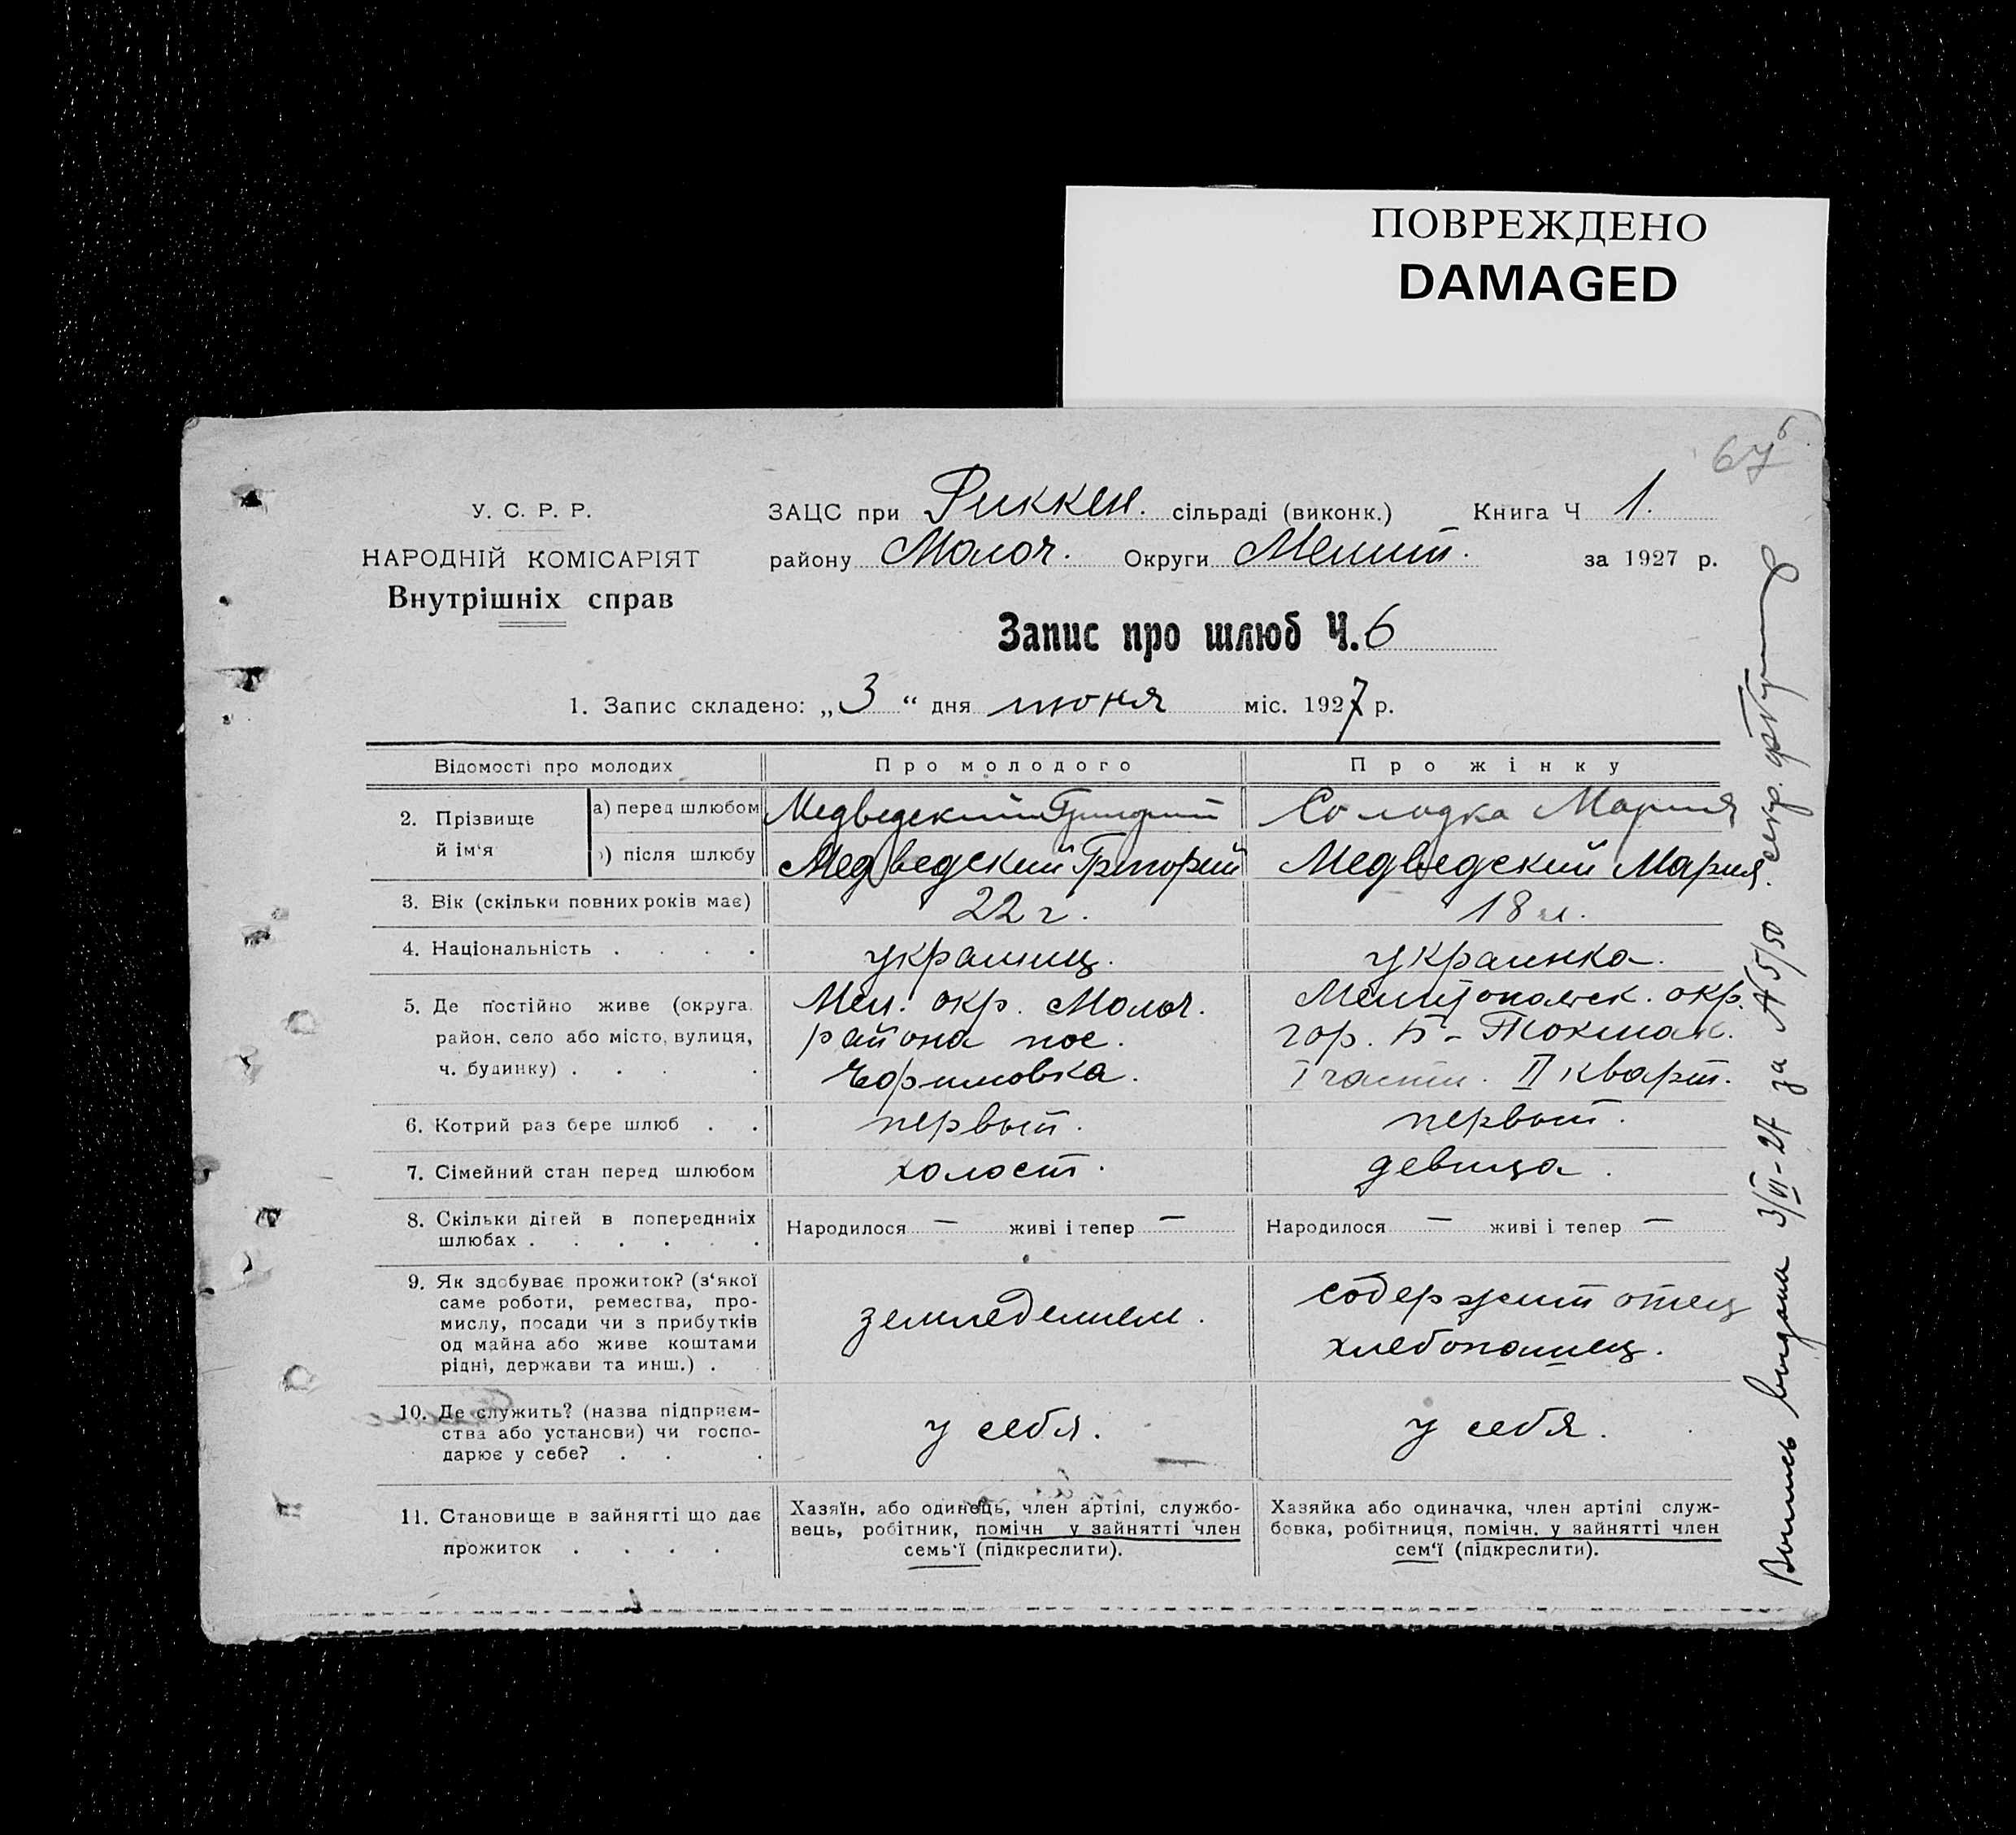 ПОВРЕЖДЕНО
DAMAGED
67
У. С. Р. Р.
НАРОДНІЙ КОМІСАРІЯТ
Внутрішніх справ
ЗАЦС при Риккен. сільраді (виконк.) Книга Ч 1.
району Молоч. Округи Мелит. за 1927 р.
Запис про шлюб Ч. 6
1. Запис складено: „3“ дня июня міс. 1927 р.
Відомості про молодих
Про молодого
Про жінку
2. Прізвище й ім‘я
а) перед шлюбом
Медведский Григорий
Солодка Мария
) після шлюбу
Медведский Григорий
Медведский Мария
3. Вік (скільки повних років має)
22 г.
18 л.
4. Національність . . . .
украинец.
украинка.
5. Де постійно живе (округа,
район, село або місто, вулиця,
ч. будинку) . . . .
Мел. окр. Молоч.
района пос.
Мелитопольск. окр.
гор. Б-Токмак.
I части. II кварт.
6. Котрий раз бере шлюб . .
первый.
первый.
7. Сімейний стан перед шлюбом
холост.
девица.
8. Скільки дітей в попередніх
шлюбах . . . . . .
Народилося — живі і тепер —
Народилося — живі і тепер —
9. Як здобуває прожиток? (з‘якої
саме роботи, ремества, про-
мислу, посади чи з прибутків
од майна або живе коштами
рідні, держави та инш.) . .
земледелием.
содержит отец
хлебопашец.
10. Де служить? (назва підприєм-
ства або установи) чи госпо-
дарює у себе? . . .
у себя.
у себя.
11. Становище в зайнятті що дає
прожиток . . . .
Хазяїн, або одинець, член артілі, службо-
вець, робітник, помічн у зайнятті член
семь‘ї (підкреслити).
Хазяйка або одиначка, член артілі служ-
бовка, робітниця, помічн. у зайнятті член
сем‘ї (підкреслити).
Выпись выдана 3/VI-27 за № 5/50 секр.